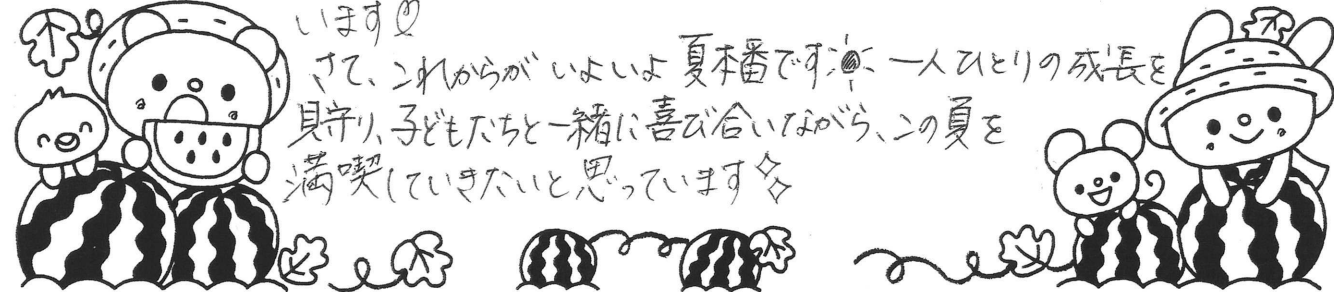 います♡
さて、これからがいよいよ夏本番です☀ 一人ひとりの成長を
見守り、子どもたちと一緒に喜び合いながら、この夏を
満喫していきたいと思っています✧